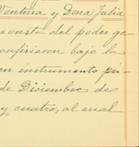 Ventura y Dona Julia
consta del poder ge
confirieron bajo la
en instrumento pú-
de Diciembre de
y cuatro, al cual